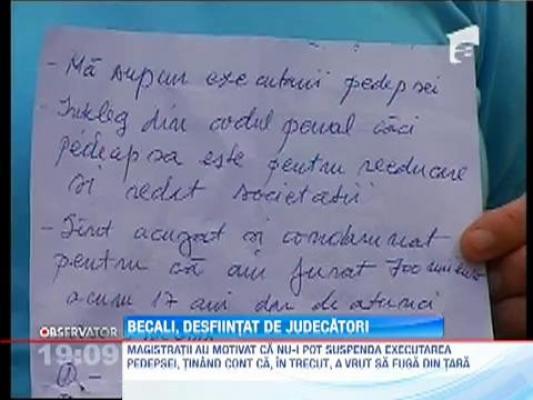 - Mă supun executării pedepsei
- Înțeleg din codul penal căci
pedeapsa este pentru reeducare
și redat societății
- Sînt acuzat și condamnat
pentru că am furat 700 mii
acum 17 ani dar de atunci
OBSERVATOR
19:09
BECALI, DESFIINȚAT DE JUDECĂTORI
MAGISTRAȚII AU MOTIVAT CĂ NU-I POT SUSPENDA EXECUTAREA
PEDEPSEI, ȚINÂND CONT CĂ, ÎN TRECUT, A VRUT SĂ FUGĂ DIN ȚARĂ